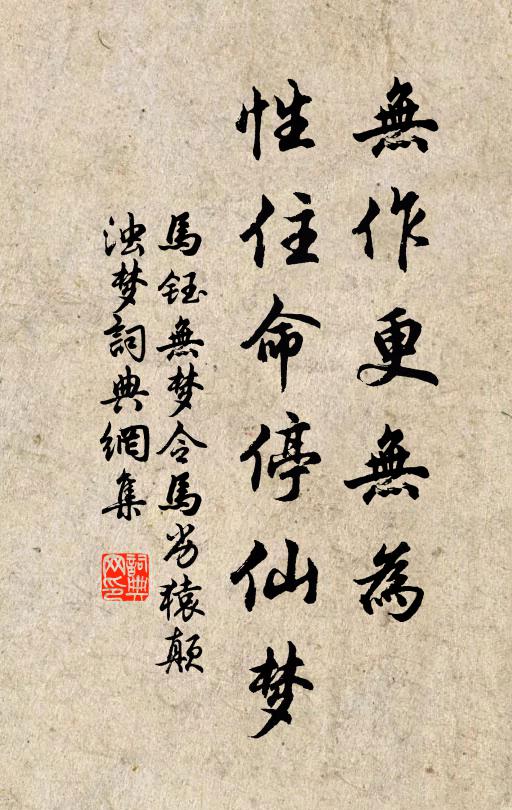 無作更無為
性住命停仙梦
馬鈺無梦令馬劣猿顛
浊梦詞典網集
詞典
网印